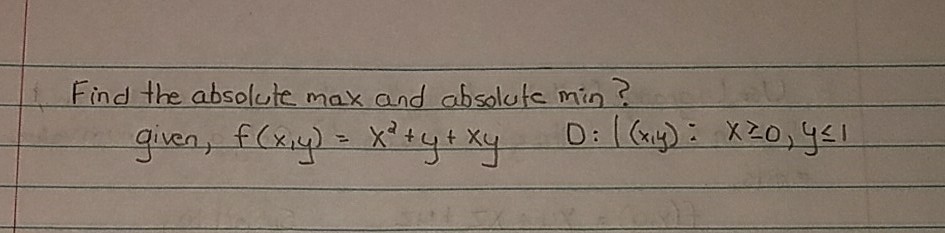 Find the absolute max and absolute min?
given, f(x,y) = x² + y + xy D: | (x,y): x≥0, y≤1